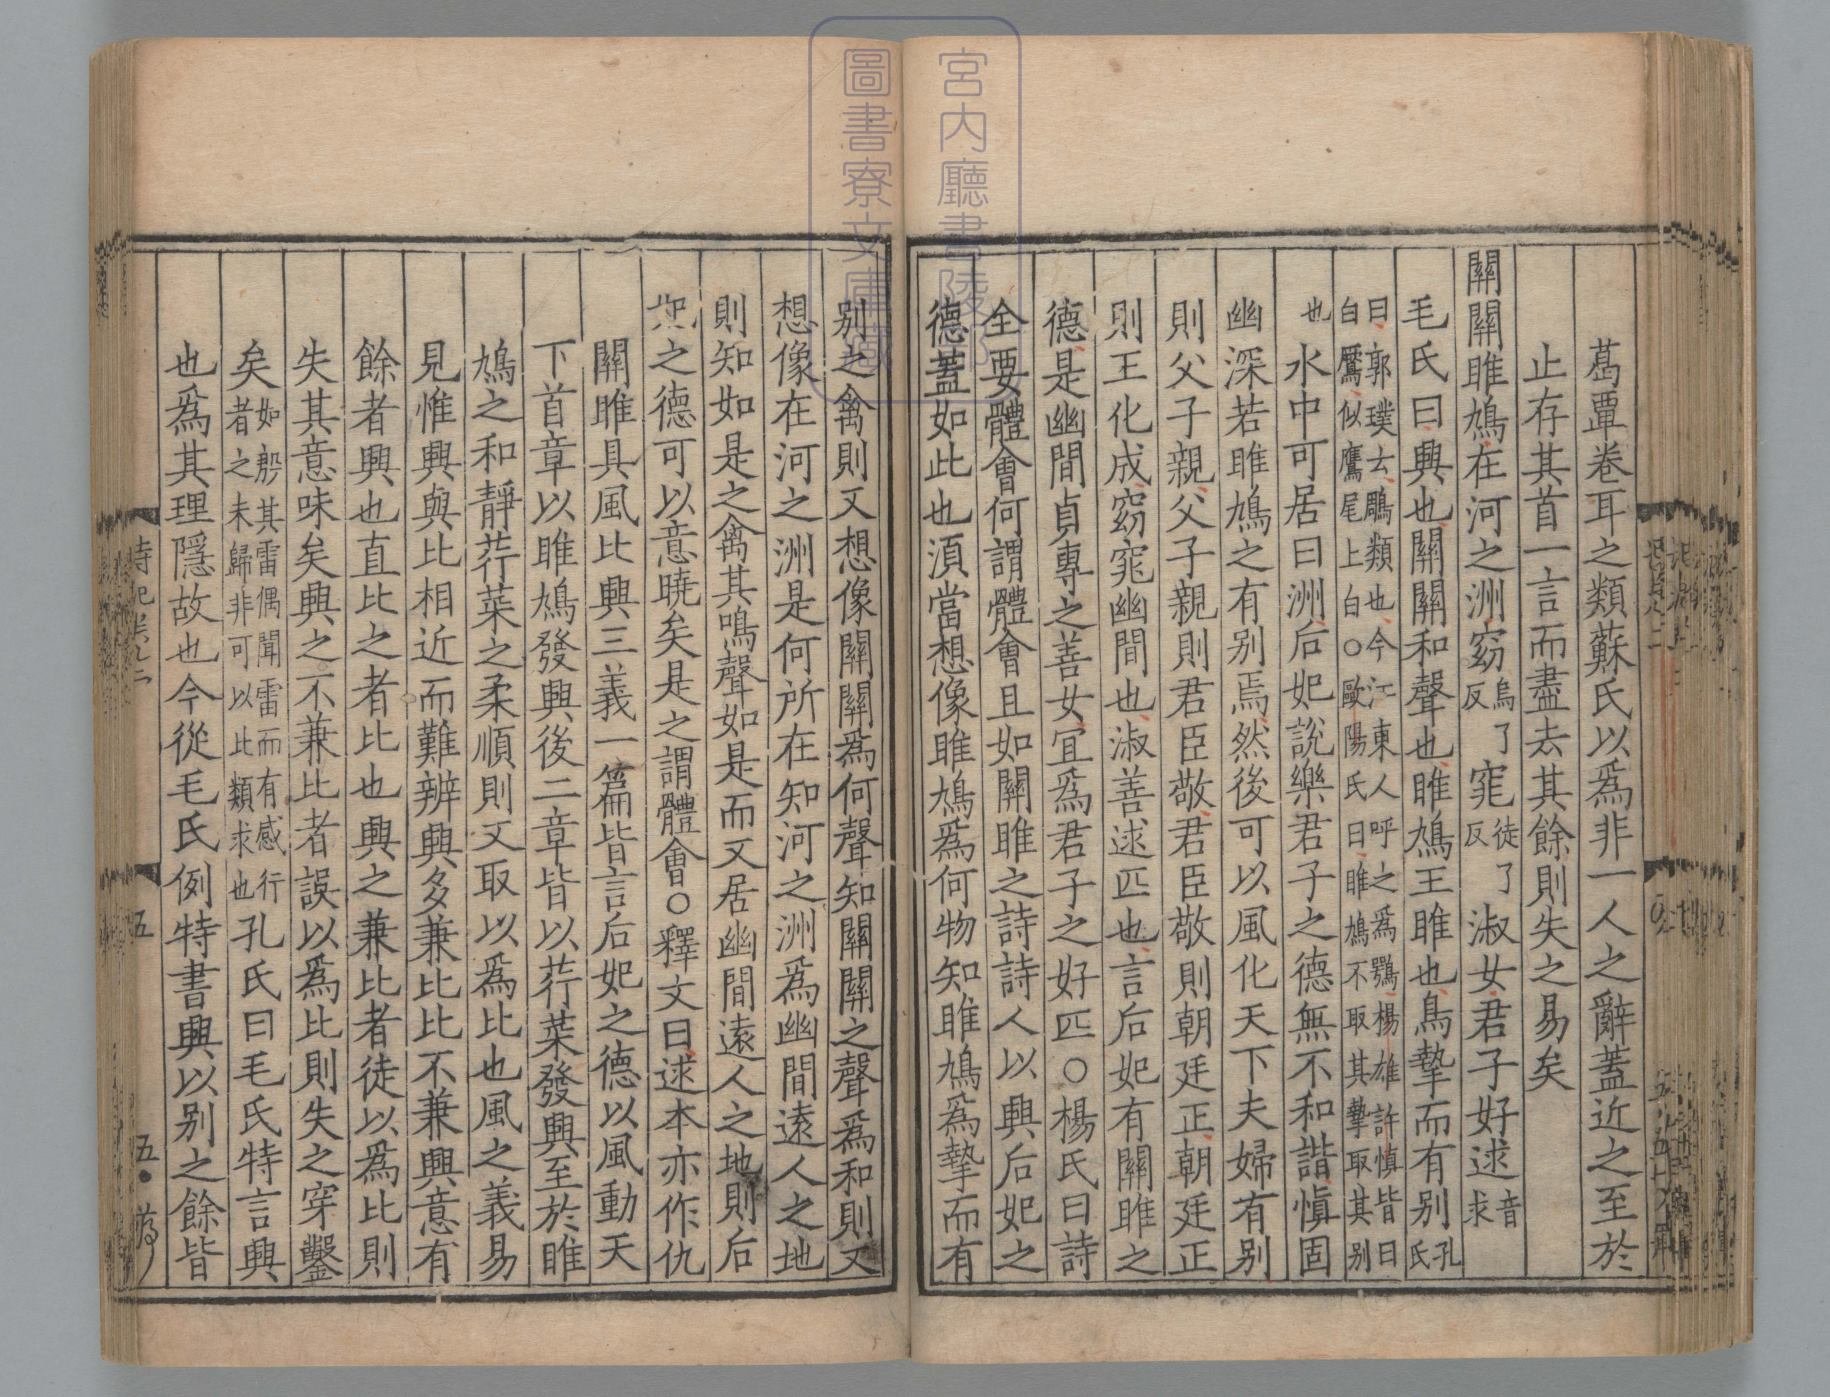 葛覃卷耳之類蘇氏以爲非一人之辭蓋近之至於
止存其首一言而盡去其餘則失之易矣
關關雎鳩在河之洲窈烏了反窕徒了反淑女君子好逑音求
毛氏曰興也關關和聲也雎鳩王雎也鳥摯而有别孔氏
曰郭璞云鵰類也今江東人呼之爲鶚楊雄許慎皆曰
白鷢似鷹尾上白○歐陽氏曰雎鳩不取其摯取其别
也水中可居曰洲后妃說樂君子之德無不和諧愼固
幽深若雎鳩之有别焉然後可以風化天下夫婦有别
則父子親父子親則君臣敬君臣敬則朝廷正朝廷正
則王化成窈窕幽間也淑善逑匹也言后妃有關雎之
德是幽間貞專之善女宜爲君子之好匹○楊氏曰詩
全要體會何謂體會且如關雎之詩詩人以興后妃之
德蓋如此也須當想像雎鳩爲何物知雎鳩爲摯而有
别之禽則又想像關關爲何聲知關關之聲爲和則又
想像在河之洲是何所在知河之洲爲幽間遠人之地
則知如是之禽其鳴聲如是而又居幽間遠人之地則后
妃之德可以意曉矣是之謂體會○釋文曰逑本亦作仇
關雎具風比興三義一篇皆言后妃之德以風動天
下首章以雎鳩發興後二章皆以荇菜發興至於雎
鳩之和靜荇菜之柔順則又取以爲比也風之義易
見惟興與比相近而難辨興多兼比比不兼興意有
餘者興也直比之者比也興之兼比者徒以爲比則
失其意味矣興之不兼比者誤以爲比則失之穿鑿
矣如殷其雷偶聞雷而有感行者之未歸非可以此類求也孔氏曰毛氏特言興
也爲其理隱故也今從毛氏例特書興以别之餘皆
詩記卷二
五
五
宮内廳書陵部
圖書寮文庫藏